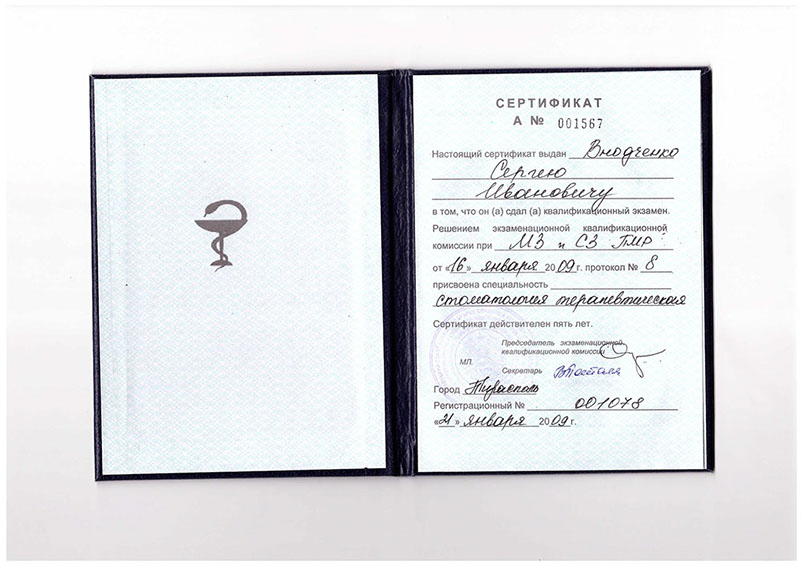 СЕРТИФИКАТ
А № 001567
Настоящий сертификат выдан Внодченко
Сергею
Ивановичу
в том, что он (а) сдал (а) квалификационный экзамен.
Решением экзаменационной квалификационной
комиссии при МЗ и СЗ ПМР
от «16» января 2009 г. протокол № 8
присвоена специальность
стоматология терапевтическая
Сертификат действителен пять лет.
Председатель экзаменационной
квалификационной комиссии
МП.
Секретарь
Город Тирасполь
Регистрационный № 001078
«21» января 2009 г.